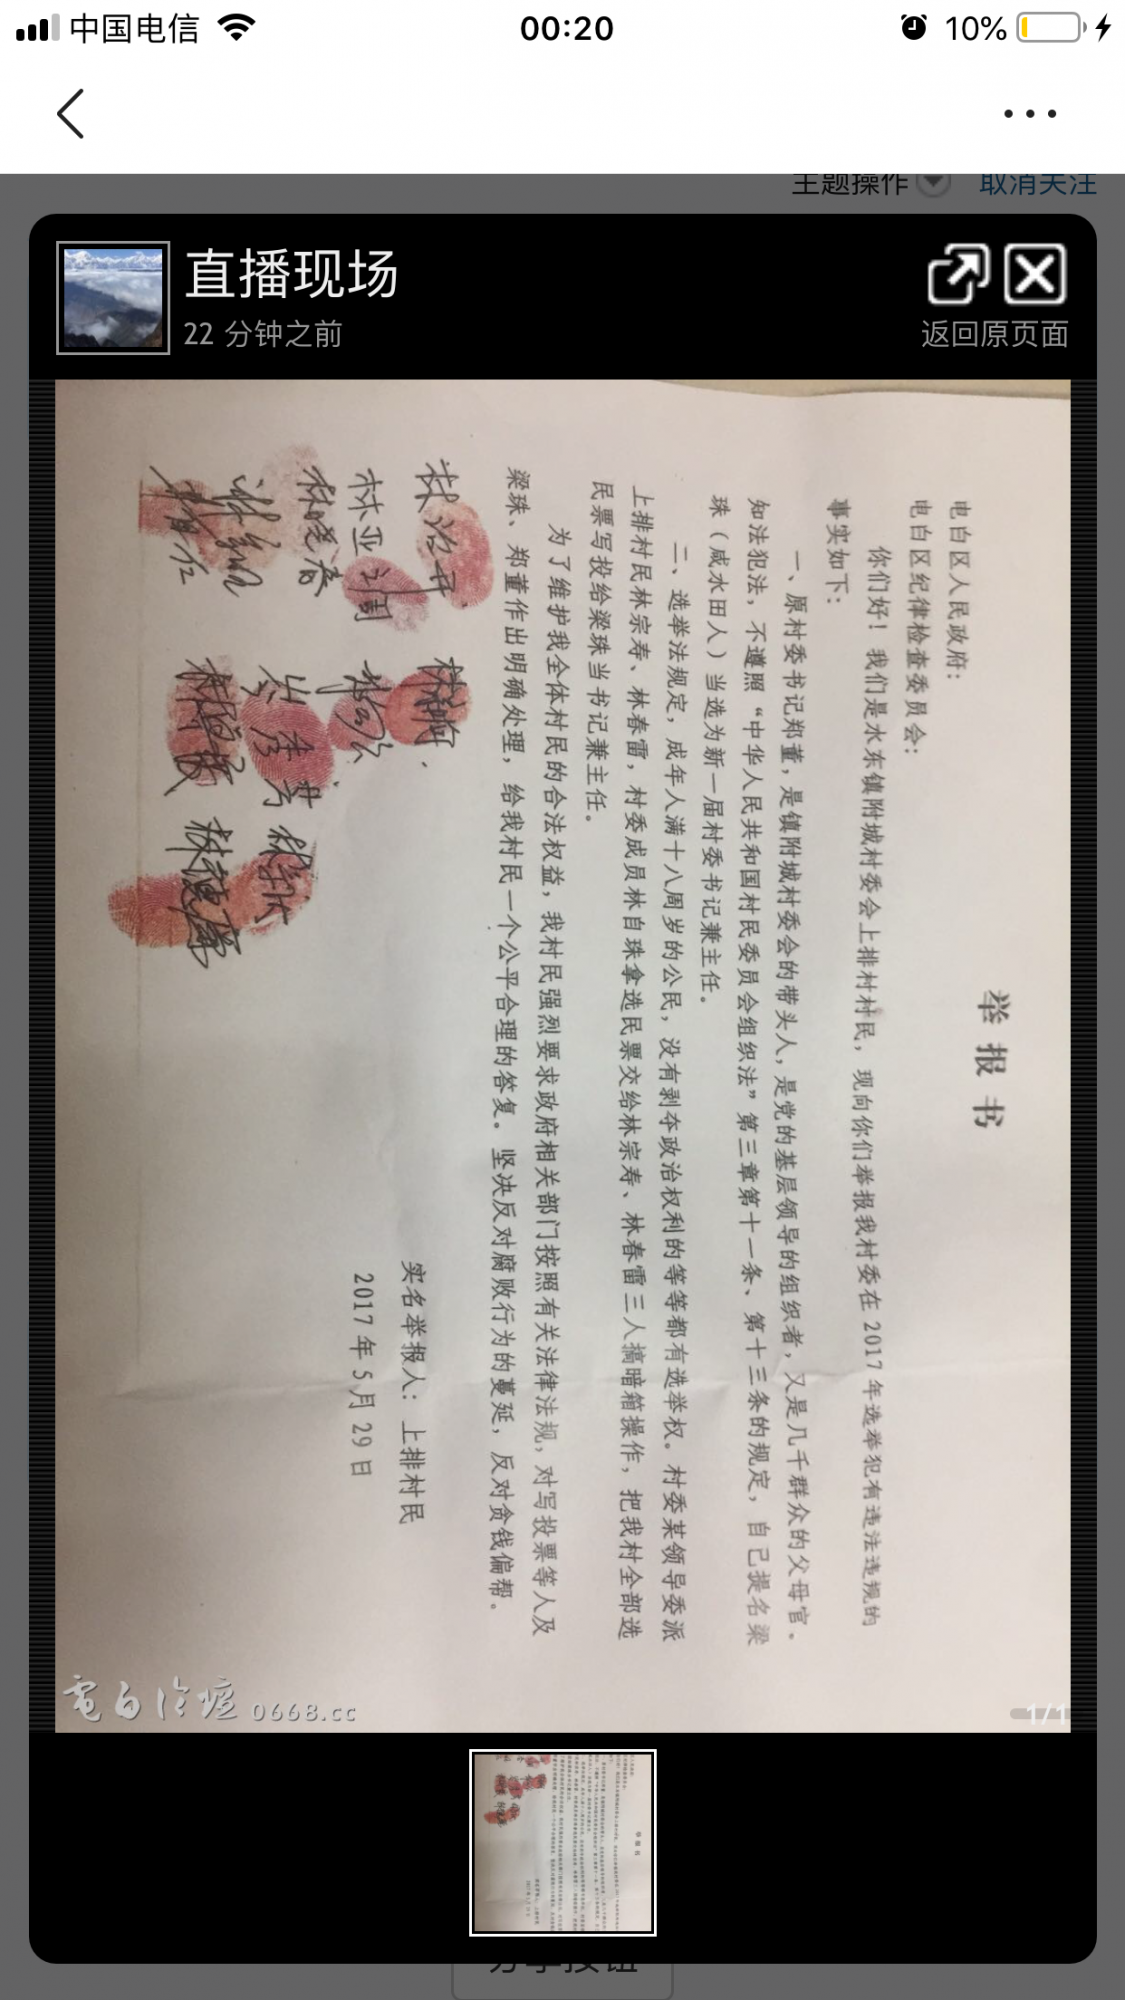 中国电信
00:20
10%
主题操作
取消关注
直播现场
22 分钟之前
返回原页面
举报书
电白区人民政府：
电白区纪律检查委员会：
你们好！我们是水东镇附城村委会上排村村民，现向你们举报我村委在 2017 年选举犯有违法违规的
事实如下：
一、原村委书记郑董，是镇附城村委会的带头人，是党的基层领导的组织者，又是几千群众的父母官、
知法犯法，不遵照“中华人民共和国村民委员会组织法”第三章第十一条、第十三条的规定，自己提名梁
珠（咸水田人）当选为新一届村委书记兼主任。
二、选举法规定，成年人满十八周岁的公民，没有剥夺政治权利的等等都有选举权。村委某领导委派
上排村民林宗寿、林春雷，村委成员林自珠拿选民票交给林宗寿、林春雷三人搞暗箱操作，把我村全部选
民票写投给梁珠当书记兼主任。
为了维护我全体村民的合法权益，我村民强烈要求政府相关部门按照有关法律法规，对写投票等人及
梁珠、郑董作出明确处理，给我村民一个公平合理的答复。坚决反对腐败行为的蔓延，反对贪钱偏帮。
实名举报人：上排村民
2017 年 5 月 29 日
林亚
林晓春
林德
電白论坛 0668.cc
1/1
分享按钮